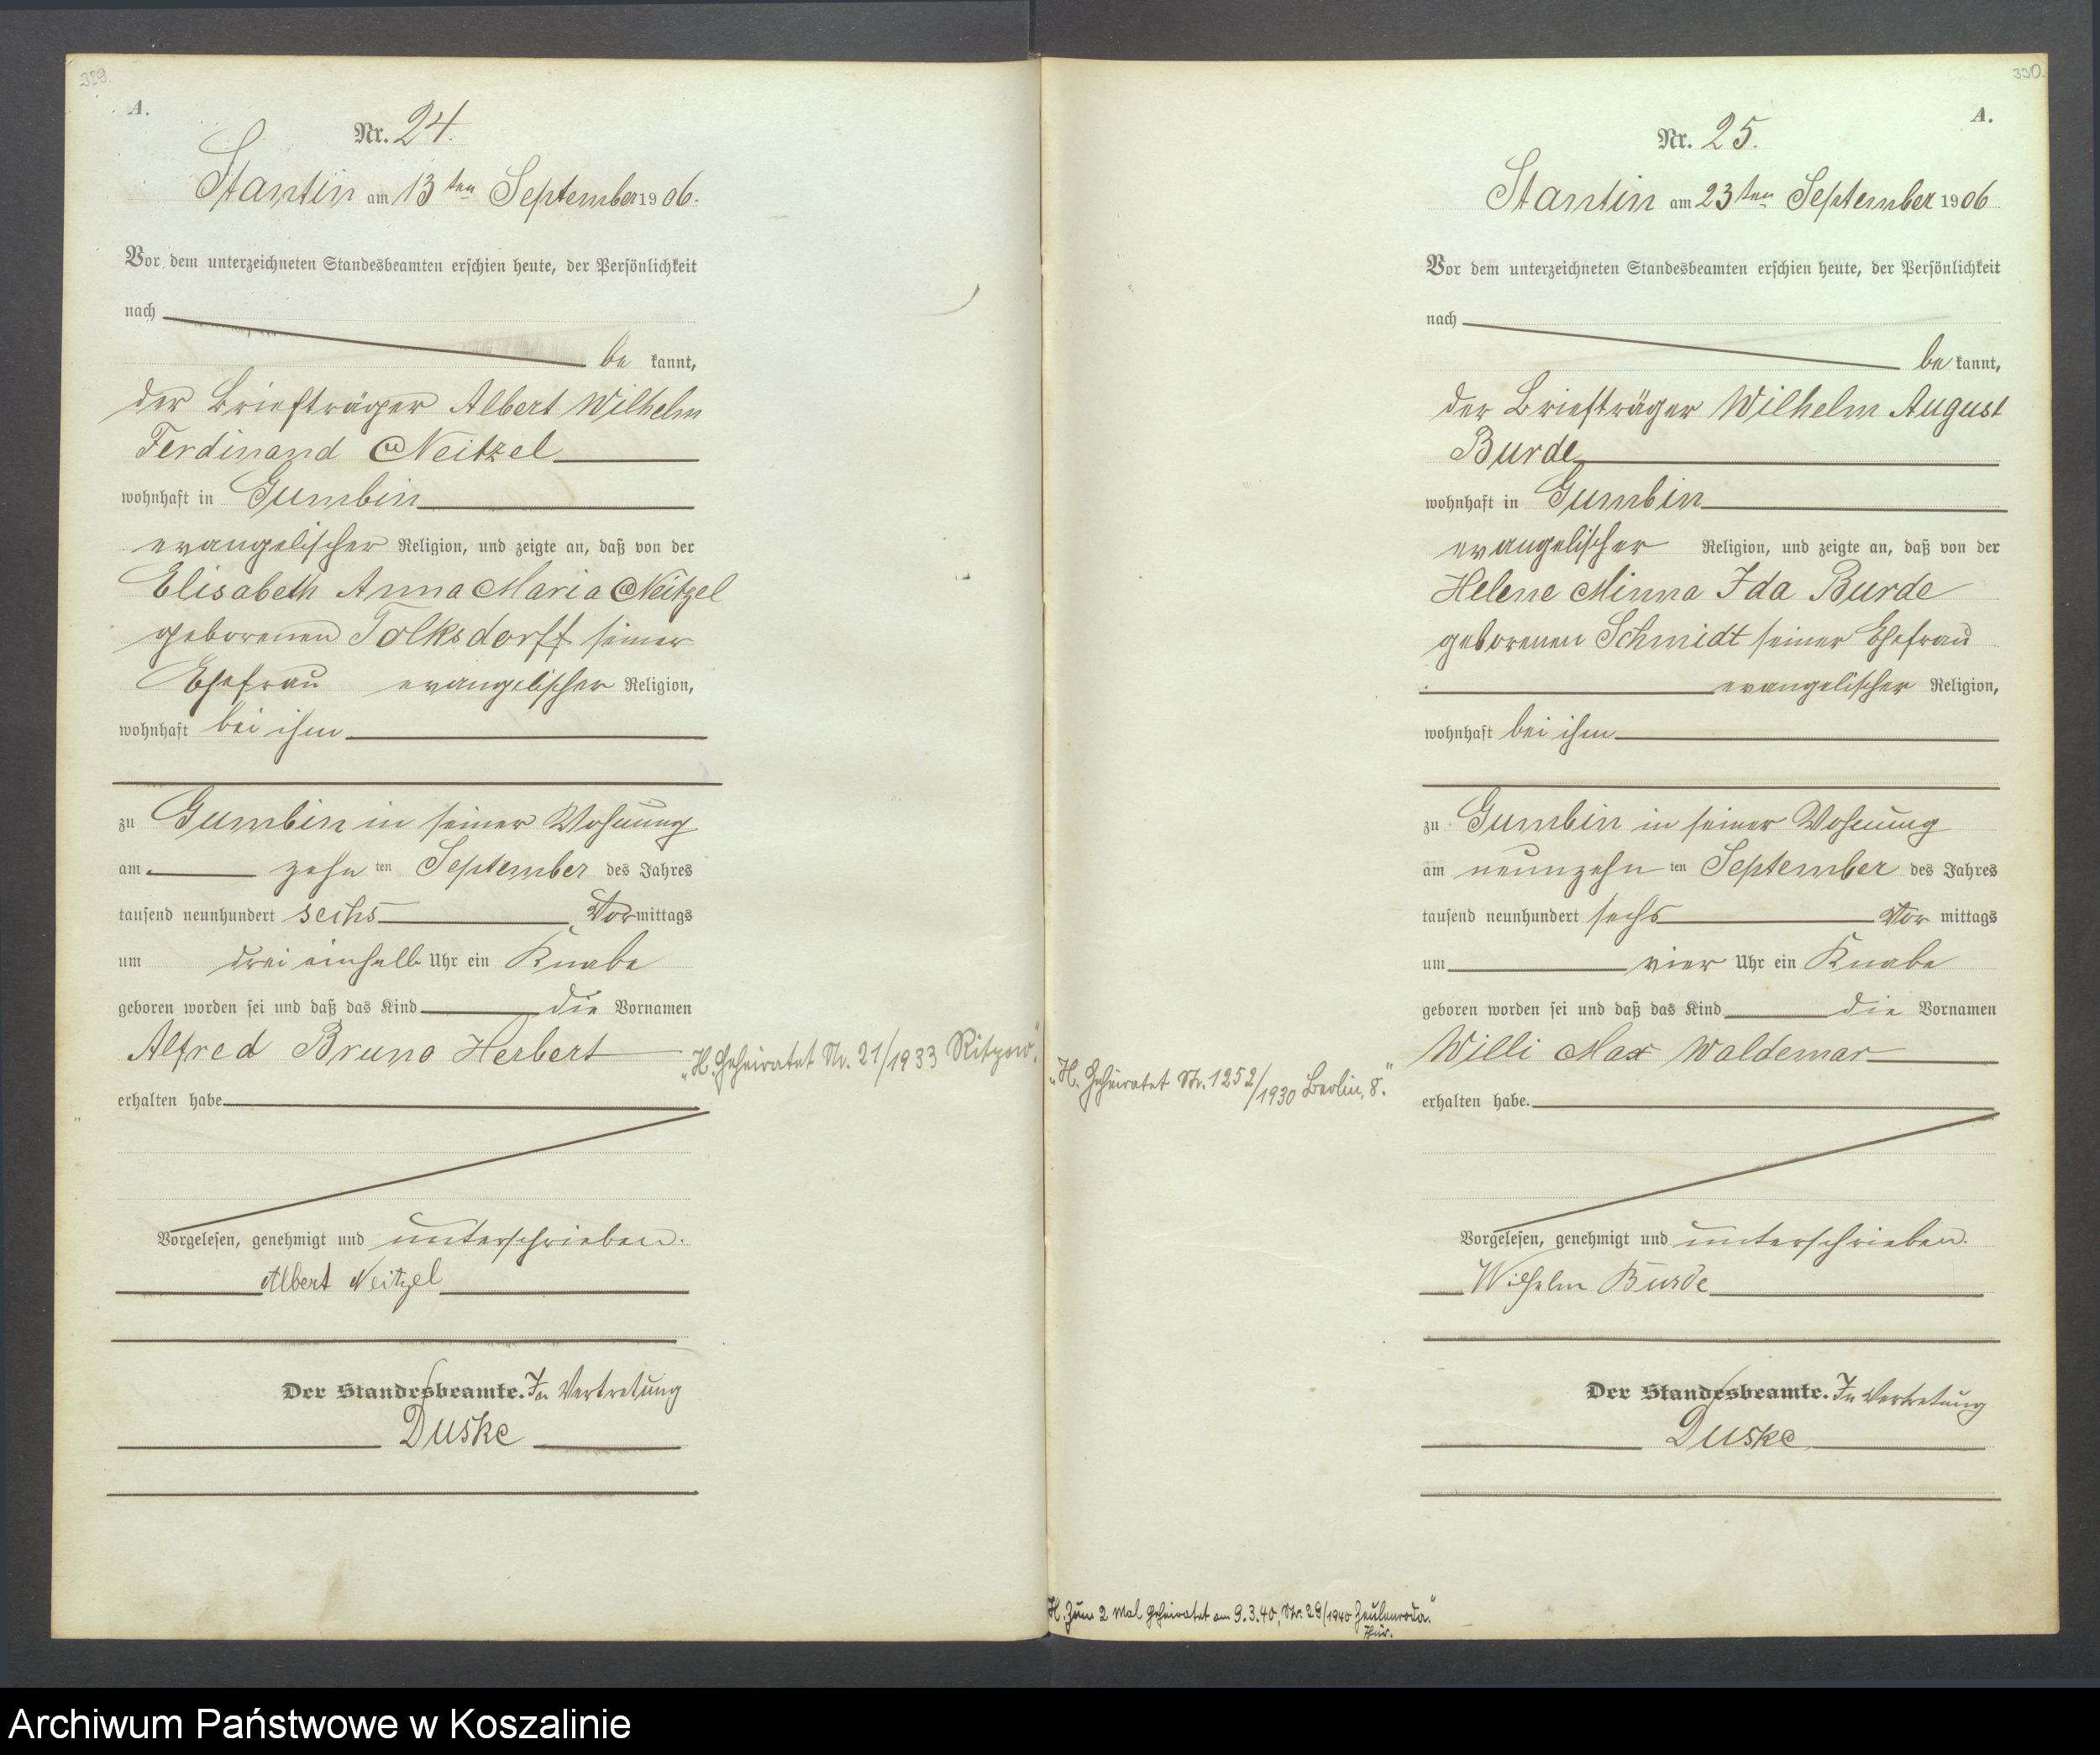 329.
A.
Nr. 24.
Stantin am 13ten September 1906.
Vor dem unterzeichneten Standesbeamten erschien heute, der Persönlichkeit
nach
be kannt,
der Briefträger Albert Wilhelm
Ferdinand Neitzel
wohnhaft in Gumbin
evangelischer Religion, und zeigte an, daß von der
Elisabeth Anna Maria Neitzel
geborenen Tolksdorff seiner
Ehefrau evangelischer Religion,
wohnhaft bei ihm
zu Gumbin in seiner Wohnung
am zehn ten September des Jahres
tausend neunhundert sechs Vormittags
um drei einhalb Uhr ein Knabe
geboren worden sei und daß das Kind die Vornamen
Alfred Bruno Herbert
„H. Geheiratet Nr. 21/1933 Ritzow."
erhalten habe
Vorgelesen, genehmigt und unterschrieben.
Albert Neitzel
Der Standesbeamte. In Vertretung
Duske
330.
A.
Nr. 25.
Stantin am 23ten September 1906
Vor dem unterzeichneten Standesbeamten erschien heute, der Persönlichkeit
nach
be kannt,
der Briefträger Wilhelm August
Burde
wohnhaft in Gumbin
evangelischer Religion, und zeigte an, daß von der
Helene Minna Ida Burde
geborenen Schmidt seiner Ehefrau
evangelischer Religion,
wohnhaft bei ihm
zu Gumbin in seiner Wohnung
am neunzehn ten September des Jahres
tausend neunhundert sechs Vor mittags
um vier Uhr ein Knabe
geboren worden sei und daß das Kind die Vornamen
Willi Max Waldemar
„H. Geheiratet Nr. 1252/1930 Berlin, 8."
erhalten habe.
Vorgelesen, genehmigt und unterschrieben.
Wilhelm Burde
Der Standesbeamte. In Vertretung
Duske
H. Zum 2 Mal geheiratet am 9.3.40, Nr. 29/1940 Zeulenroda."
Thür.
Archiwum Państwowe w Koszalinie